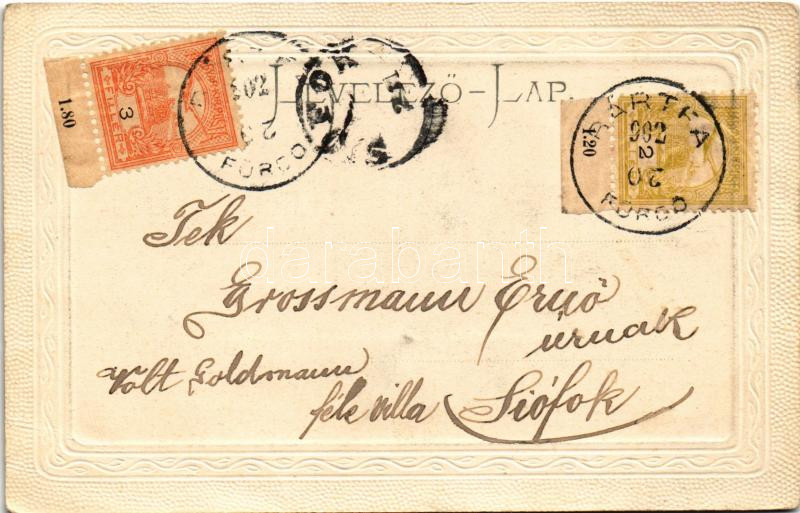 LEVELEZŐ-LAP.
1.80
3
FILLER
FÜRDŐ
SIÓFOK
BÁRTFA
902
2
20
FÜRDŐ
1.20
Tek
Grossmann Ernő
úrnak
Volt Goldmann
féle villa Siófok
darabanth